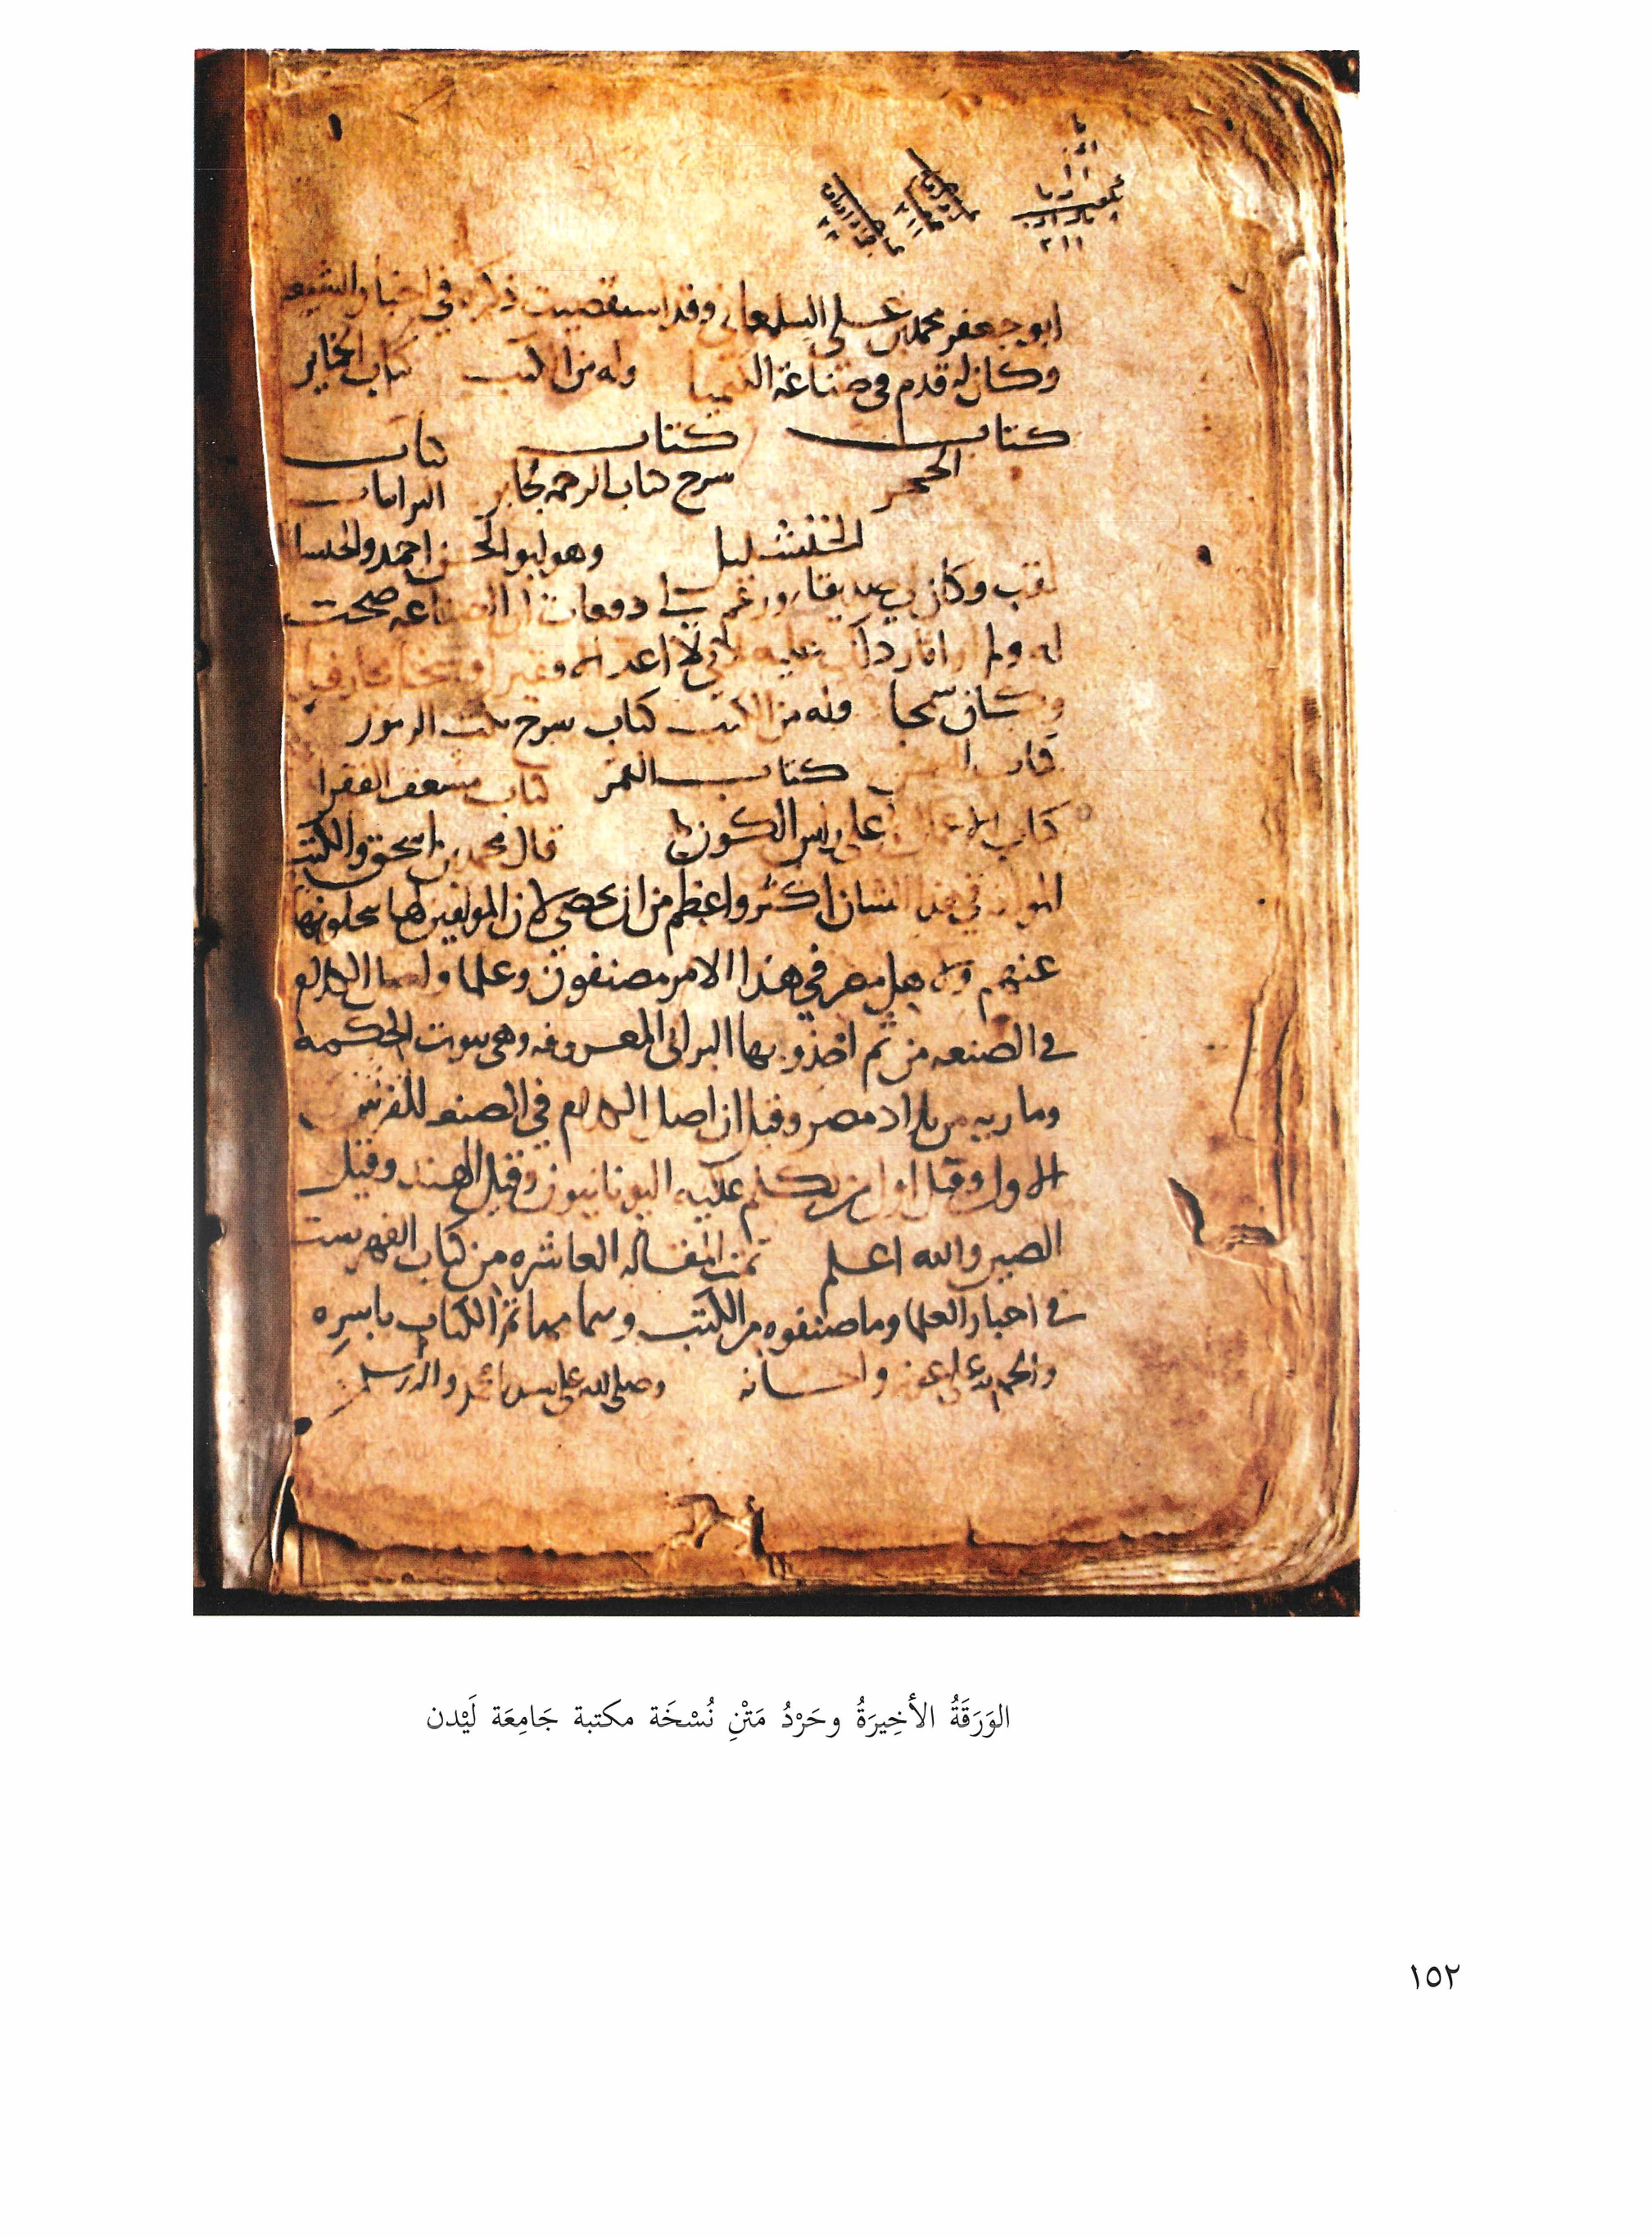 ابو جعفر محمد بن على السلمغانى وقد استقصيت ذكره في اخبار الشيعه
وكان له قدم في صناعة الكيميا وله من الكتب كتاب الخماير
كتاب كتاب كتاب
الحجر شرح كتاب الرحمه لجابر البرانيات
الخنشليل
وهو ابو الحسن احمد والخنسليل
لقب وكان لي صديقا وزعم لي دفعات ان الصناعه صحت
له ولم ار اثار ذلك عليه لاني لا اعد اله فقيرا
وكان سمحا وله من الكتب كتاب شرح نكت الرموز
كتاب كتاب القمر كتاب مسعف الفقرا
كتاب الاعمال على راس الكون
قال محمد بن اسحق والكتب
المولفه في هذا الشان اكثر واعظم من ان تحصى لان المولفين لها ينحلونها
عنهم ولاهل مصر في هذا الامر مصنفون وعلما واصل الكلام
في الصنعه من ثم اخذ وبها البرابى المعروفه وهى بيوت الحكمه
وماريه من بلاد مصر وقيل ان اصل الكلام في الصنعه للفرس
الاول وقيل اول من تكلم عليه اليونانيون وقيل الهند وقيل
الصين والله اعلم تمت المقاله العاشره من كتاب الفهرست
في اخبار العلما وما صنفوه من الكتب تم الكتاب باسره
والحمد لله على واحسانه وصلى الله على سيدنا محمد واله وسلم
الوَرَقَةُ الأخِيرَةُ وحَرْدُ مَتْنِ نُسْخَة مكتبة جَامِعَة لَيْدن
١٥٢